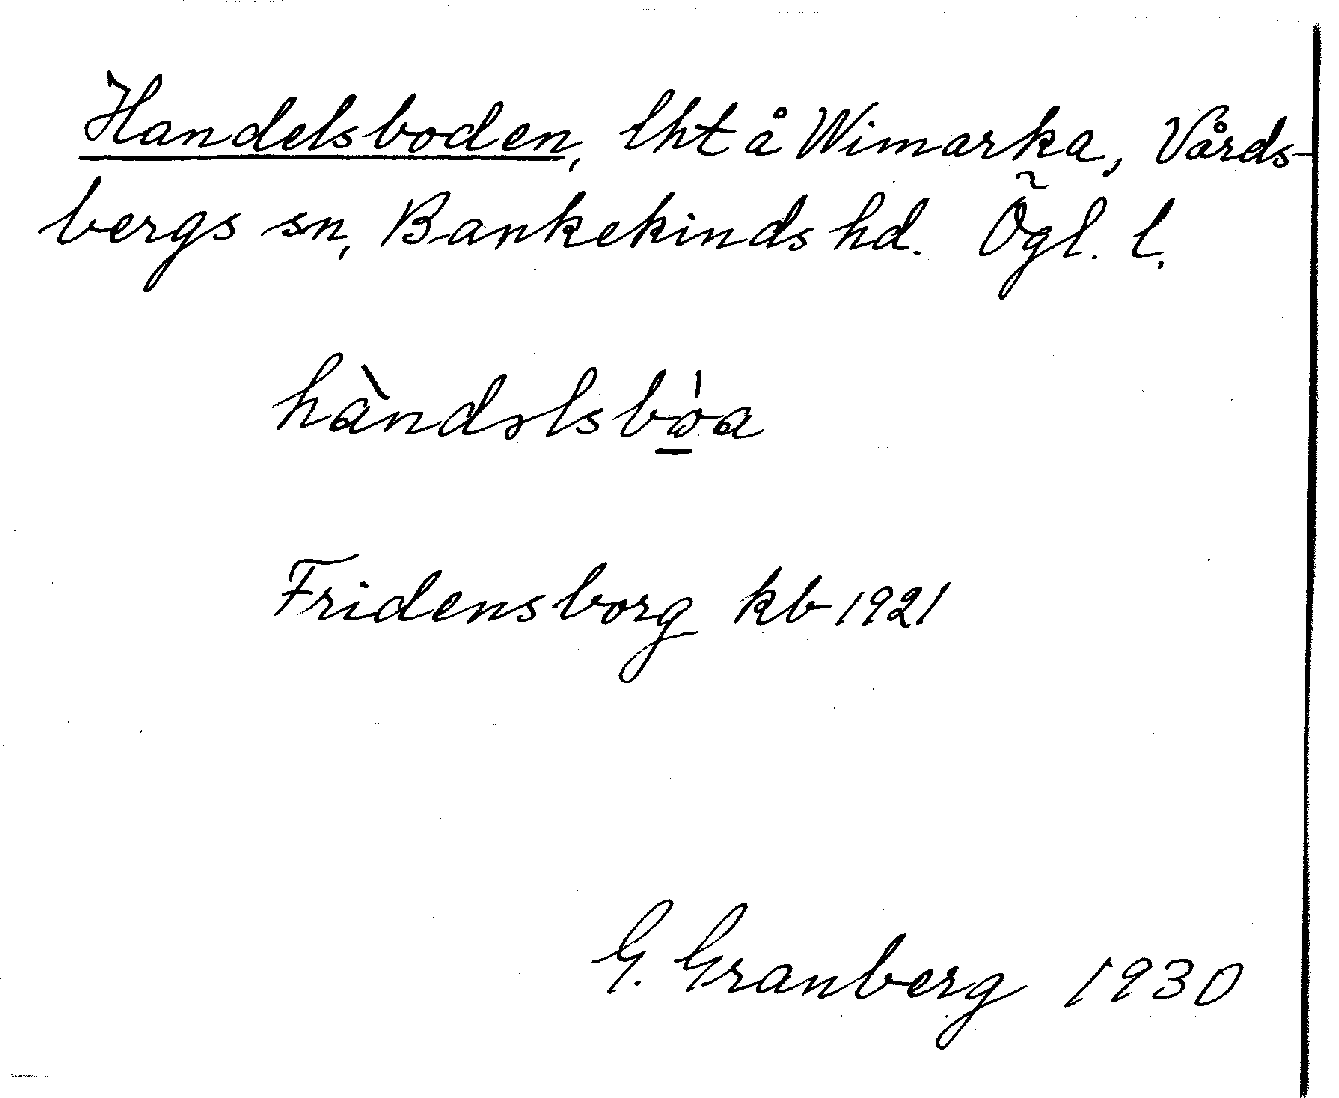 Handelsboden, lht å Wimarka, Vårds-
bergs sn, Bankekinds hd. Ögl. l.
hàndəlsbo̠a
Fridensborg kb 1921
G. Granberg 1930